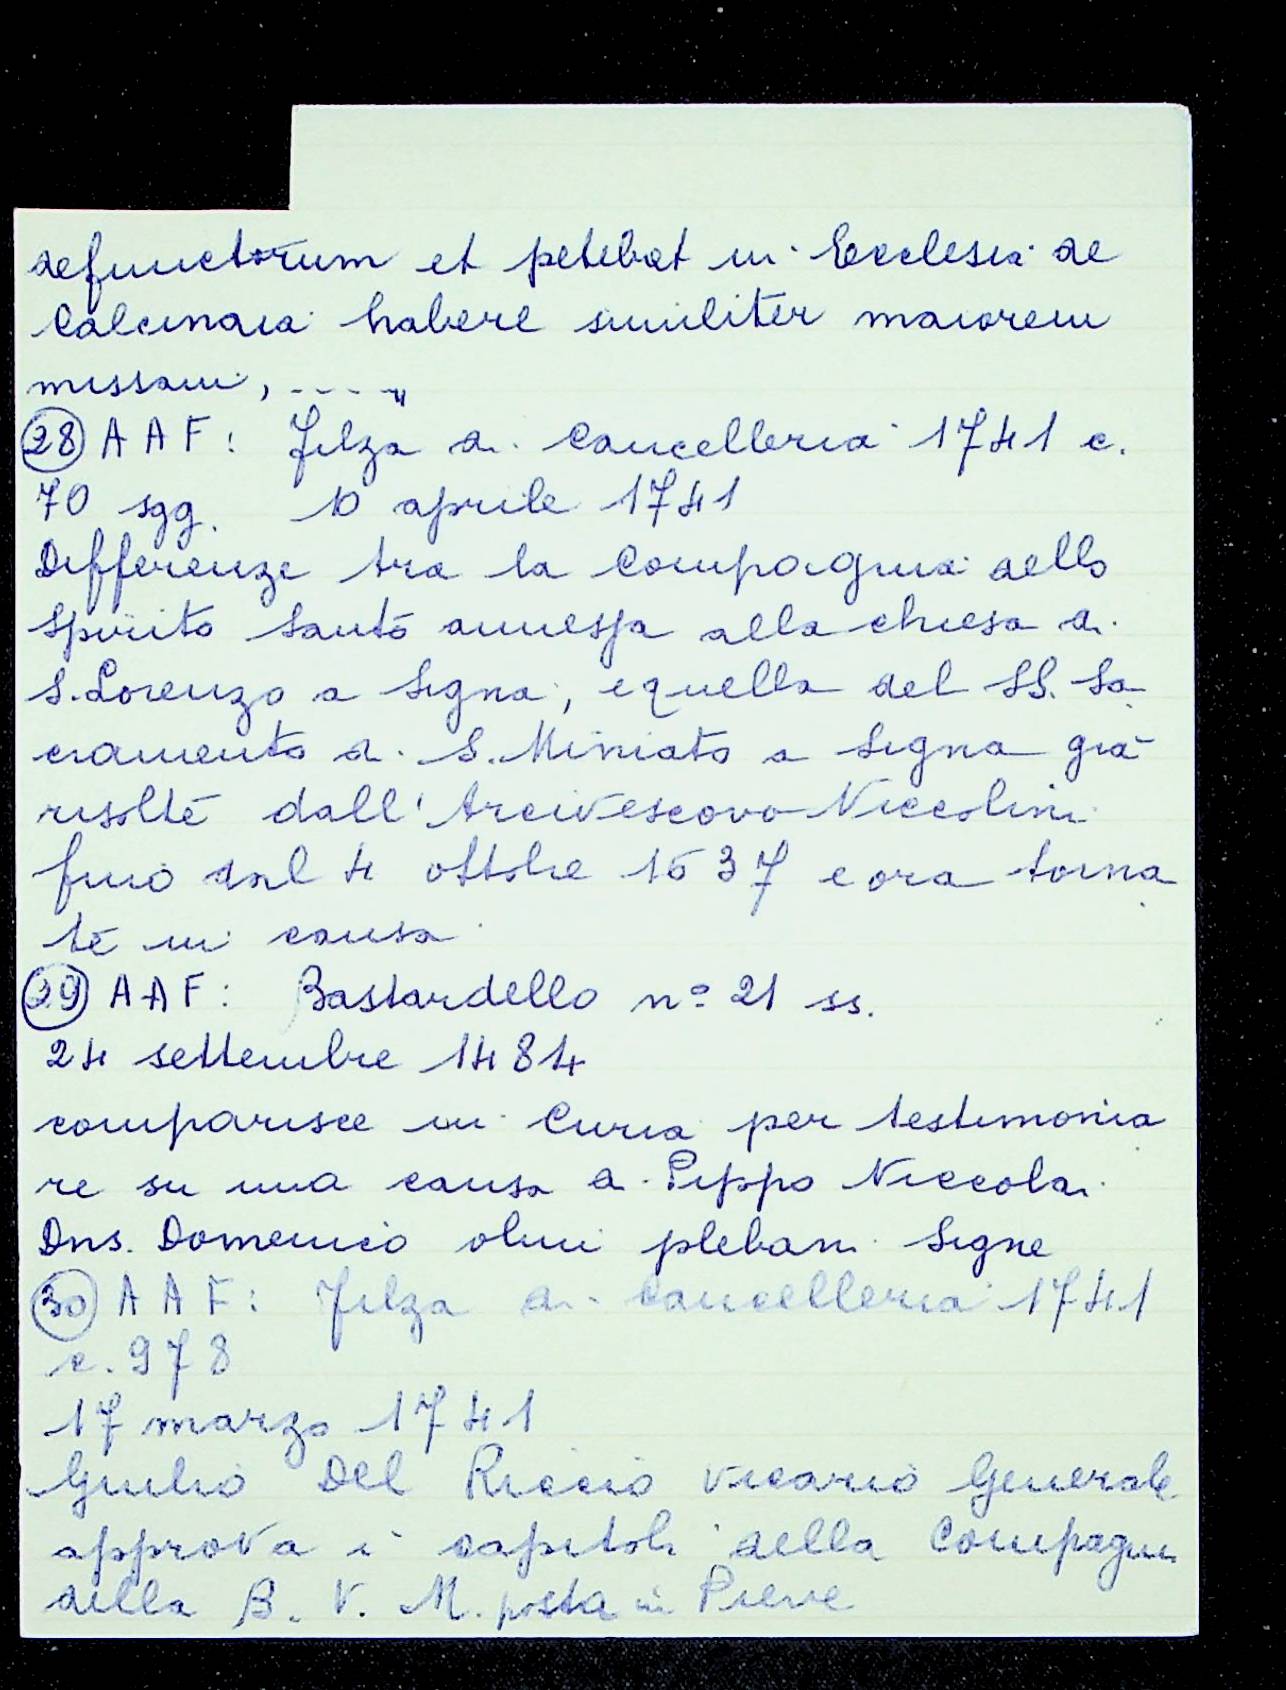 defunctorum et petebat in Ecclesia de
Calcinaia habere similiter maiorem
missam, ---- "
28 A A F: Filza di Cancelleria 1741 c.
70 sgg. 10 aprile 1741
Differenze tra la Compagnia dello
Spirito Santo annessa alla chiesa di
S. Lorenzo a Signa, e quella del SS. Sa
cramento di S. Miniato a Signa già
risolte dall'Arcivescovo Niccolini
fino dal 4 ottobre 1637 e ora torna
te in causa
29 A A F: Bastardello nº 21 ss.
24 settembre 1484
comparisce in Curia per testimonia
re su una causa di Pippo Niccolai
Dns. Domenico olim plebani Signe
30 A A F: Filza di Cancelleria 1741
c. 978
17 marzo 1741
Giulio Del Riccio Vicario Generale
approva i capitoli della Compagnia
della B. V. M. posta in Pieve